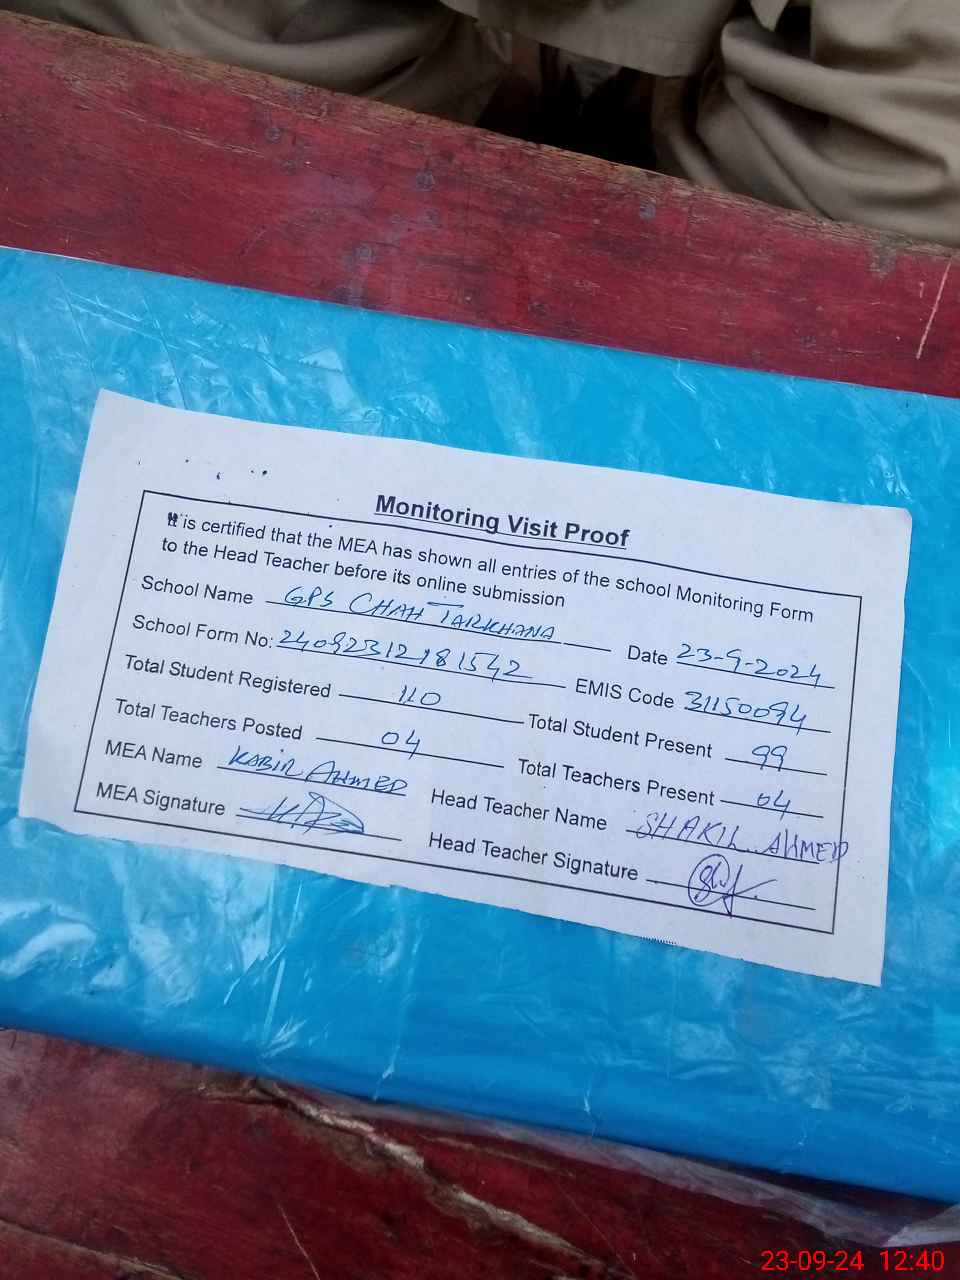 Monitoring Visit Proof
It is certified that the MEA has shown all entries of the school Monitoring Form
to the Head Teacher before its online submission
School Name GPS CHAH TARKHANA Date 23-9-2024
School Form No: 24092312181542 EMIS Code 31150094
Total Student Registered 110 Total Student Present 99
Total Teachers Posted 04 Total Teachers Present 04
MEA Name KABIR AHMED Head Teacher Name SHAKIL AHMED
MEA Signature Head Teacher Signature
23-09-24 12:40